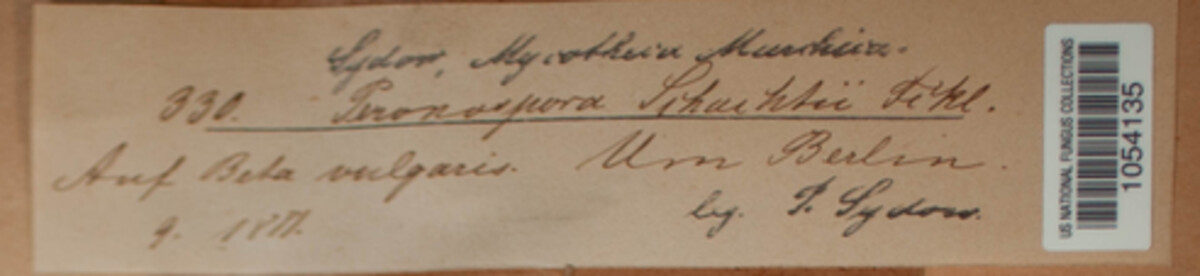 Sydow, Mycotheca Marchica.
330. Peronospora Schachtii Fckl.
Auf Beta vulgaris. Um Berlin.
leg. P. Sydow.
9.
US NATIONAL FUNGUS COLLECTIONS
1054135